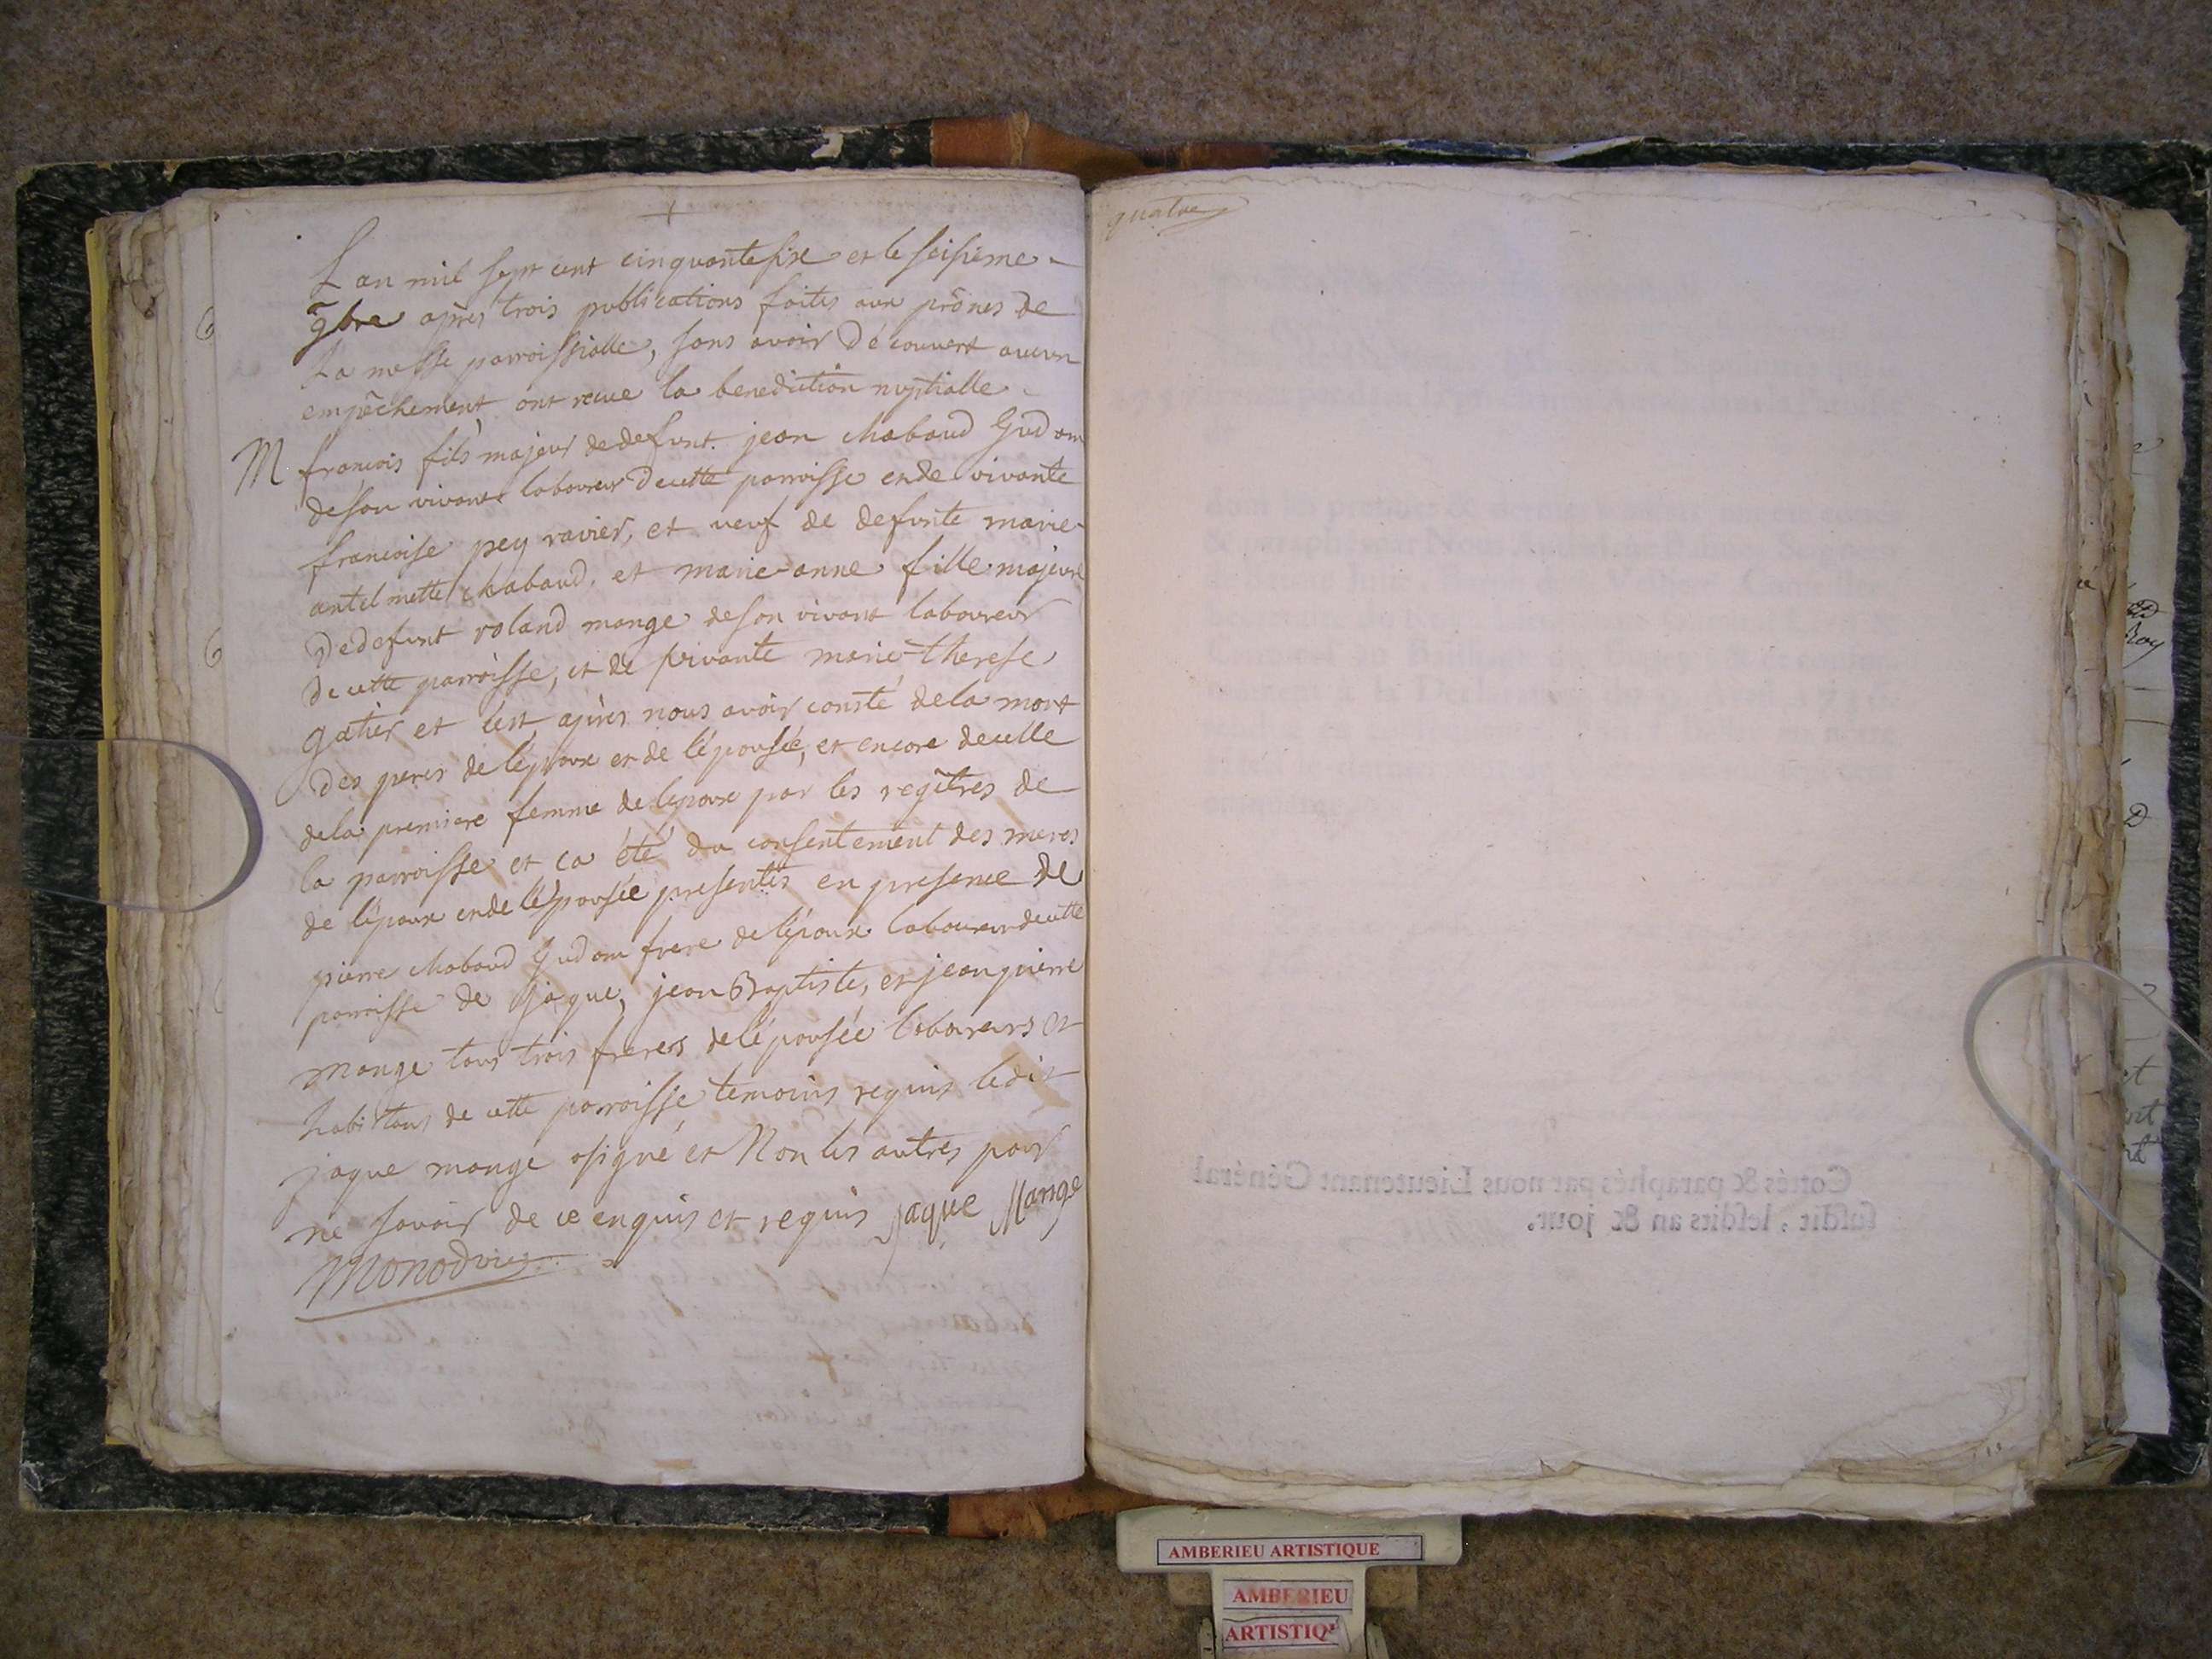 L'an mil sept cent cinquante six et le seisieme
9bre après trois publications faites aux prônes de
La messe parroissialle, sans avoir découvert aucun
empêchement ont recue la benediction nuptialle
M francois fils majeur de defunt jean chabaud Gudom
de son vivant laboureur de cette parroisse et de vivante
francoise pey ravier, et veuf de defunte marie
antelmette chabaud, et marie-anne fille majeure
De defunt roland mange de son vivant laboureur
de cette parroisse, et de vivante marie-therese
gatier et c'est après nous avoir consté de la mort
des peres de l'époux et de l'épousée, et encore de celle
de la premiere femme de l'epoux par les regîtres de
la parroisse et ça été du consentement des meres
de l'époux et de l'épousée presentes en presence de
pierre chabaud Gudom frere de l'époux laboureur de cette
parroisse de jaque, jean Baptiste, et jean pierre
mange tous trois freres de l'épousée laboureurs et
habitans de cette parroisse temoins requis ledit
jaque mange a signé et Non les autres pour
ne savoir de ce enquis et requis Jaque Mange
Monod
quatre
Cottés & paraphés par nous Lieutenant Général
susdit, lesdits an & jour.
AMBERIEU ARTISTIQUE
AMBERIEU
ARTISTIQ